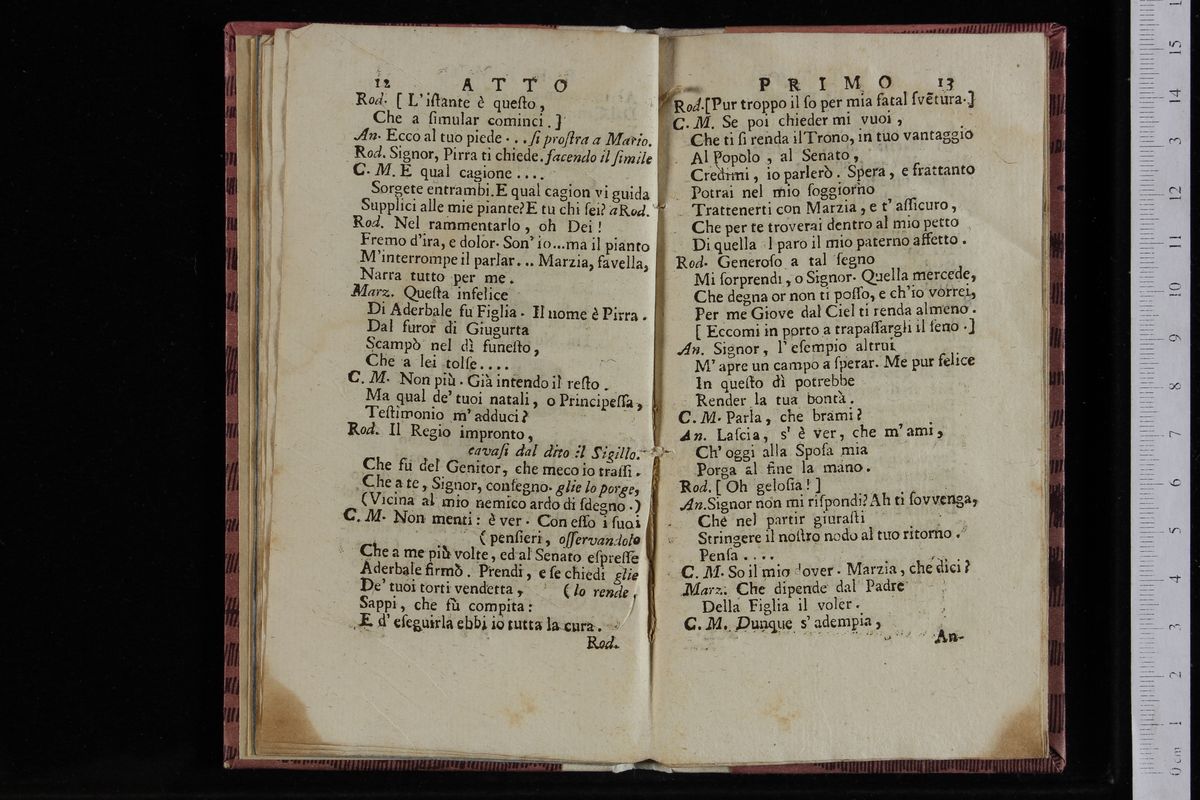 12 ATTO
Rod. [ L'iſtante è queſto,
Che a ſimular cominci. ]
An. Ecco al tuo piede... ſi proſtra a Mario.
Rod. Signor, Pirra ti chiede. facendo il ſimile
C. M. E qual cagione....
Sorgete entrambi. E qual cagion vi guida
Supplici alle mie piante? E tu chi ſei? a Rod.
Rod. Nel rammentarlo, oh Dei!
Fremo d'ira, e dolor. Son' io... ma il pianto
M'interrompe il parlar... Marzia, favella,
Narra tutto per me.
Marz. Queſta infelice
Di Aderbale fu Figlia. Il nome è Pirra.
Dal furor di Giugurta
Scampò nel dì funeſto,
Che a lei tolſe....
C. M. Non più. Già intendo il reſto.
Ma qual de' tuoi natali, o Principeſſa,
Teſtimonio m'adduci?
Rod. Il Regio impronto,
cavaſi dal dito il Sigillo.
Che fu del Genitor, che meco io traſſi.
Che a te, Signor, conſegno. glie lo porge,
(Vicina al mio nemico ardo di ſdegno.)
C. M. Non menti: è ver. Con eſſo i ſuoi
( penſieri, oſſervandolo
Che a me più volte, ed al Senato eſpreſſe
Aderbale firmò. Prendi, e ſe chiedi glie
De' tuoi torti vendetta, ( lo rende,
Sappi, che fù compita:
E d' eſeguirla ebbi io tutta la cura.
Rod.
PRIMO 13
Rod. [Pur troppo il ſo per mia fatal ſvẽtura.]
C. M. Se poi chieder mi vuoi,
Che ti ſi renda il Trono, in tuo vantaggio
Al Popolo, al Senato,
Credimi, io parlerò. Spera, e frattanto
Potrai nel mio ſoggiorno
Trattenerti con Marzia, e t' aſſicuro,
Che per te troverai dentro al mio petto
Di quella l paro il mio paterno affetto.
Rod. Generoſo a tal ſegno
Mi ſorprendi, o Signor. Quella mercede,
Che degna or non ti poſſo, e ch'io vorrei,
Per me Giove dal Ciel ti renda almeno.
[ Eccomi in porto a trapaſſargli il ſeno.]
An. Signor, l' eſempio altrui
M' apre un campo a ſperar. Me pur felice
In queſto dì potrebbe
Render la tua bontà.
C. M. Parla, che brami?
An. Laſcia, s' è ver, che m' ami,
Ch' oggi alla Spoſa mia
Porga al fine la mano.
Rod. [ Oh geloſia! ]
An. Signor non mi riſpondi? Ah ti ſovvenga,
Che nel partir giuraſti
Stringere il noſtro nodo al tuo ritorno.
Penſa....
C. M. So il mio dover. Marzia, che dici?
Marz. Che dipende dal Padre
Della Figlia il voler.
C. M. Dunque s' adempia,
An-